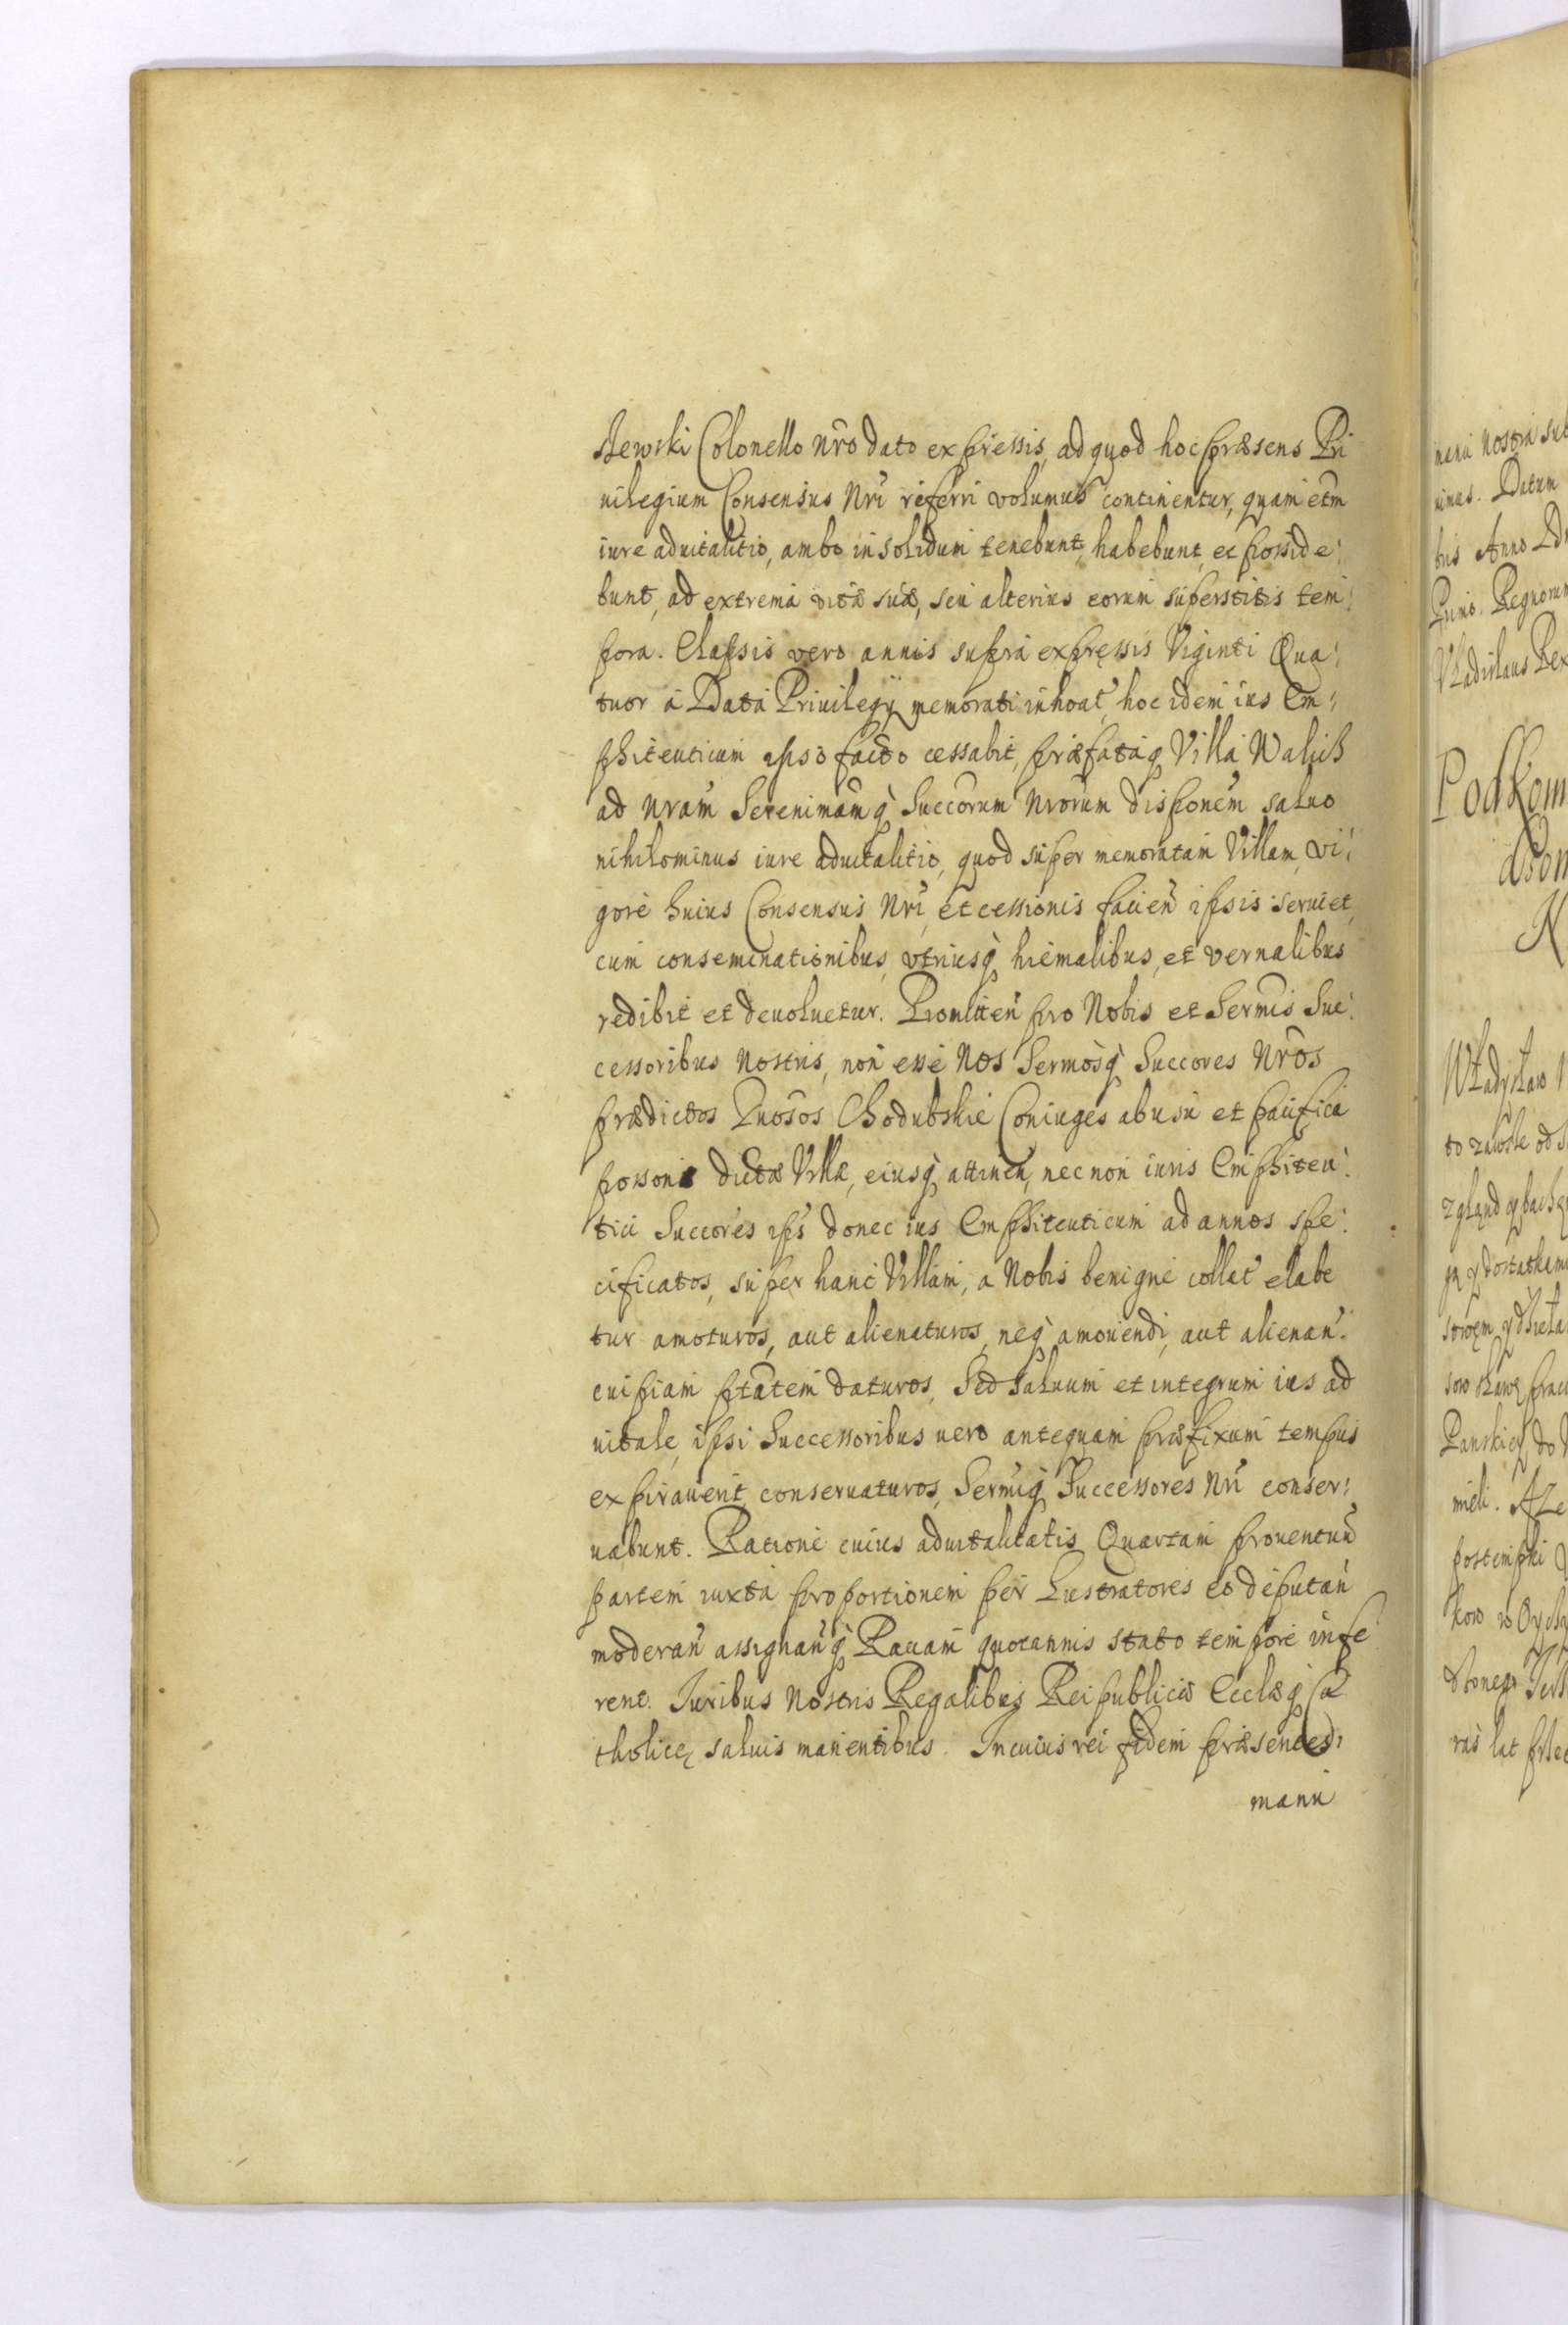 stewski Colonello Nro dato expressis, ad quod hoc præsens Pri
uilegium Consensus Nri referri volumus continentur, quam etm
iure aduitalitio, ambo in solidum tenebunt, habebunt, et posside:
bunt, ad extrema vitæ suæ, seu alterius eorum superstitis tem:
pora. Elapsis vero annis supra expressis Viginti Qua:
tuor à Data Priuilegÿ memorati inhoat, hoc idem ius Em:
phiteuticum ipso facto cessabit, præfataq Villa Walich
ad Nram Serenimamq Succorum Nrorum disponem saluo
nihilominus iure aduitalitio, quod super memoratam Villam, vi:
gore huius Consensus Nri, et cessionis facien ipsis seruiet,
cum conseminationibus, vtriusq hiemalibus, et vernalibus
redibit et deuoluetur. Promitten pro Nobis et Sermis Suc:
cessoribus Nostris, non esse Nos Sermosq Succores Nros
prædictos Gnosos Chodubskie Coniuges ab usu et pacifica
possone dictæ Villæ, eiusq attinen, nec non iuris Emphiteu:
tici Succores ips donec ius Emphiteuticum ad annos spe:
cificatos, super hanc Villam, a Nobis benigne collat elabe
tur amoturos, aut alienaturos, neq amouendi, aut alienan:
cuipiam ptatem daturos, Sed saluum et integrum ius ad
uitale, ipsi Successoribus uero antequam præfixum tempus
expirauerit, conseruaturos, Sermiq Successores Nri conser:
uabunt. Ratione cuius aduitalitatis Quartam prouentuu
partem iuxta proportionem per Lustratores eo deputan
moderan assignanq Rauam quotannis stato tempore infe
rent. Iuribus Nostris Regalibus Reipublicæ Ecclæq Ca
tholicę saluis manentibus. In cuius rei fidem præsentes:
manu
manu nostra sub
Datum
bris Anno Dn
Primo. Regnorum
Vladislaus Rex
Podkom
Władysław
to zawsle od